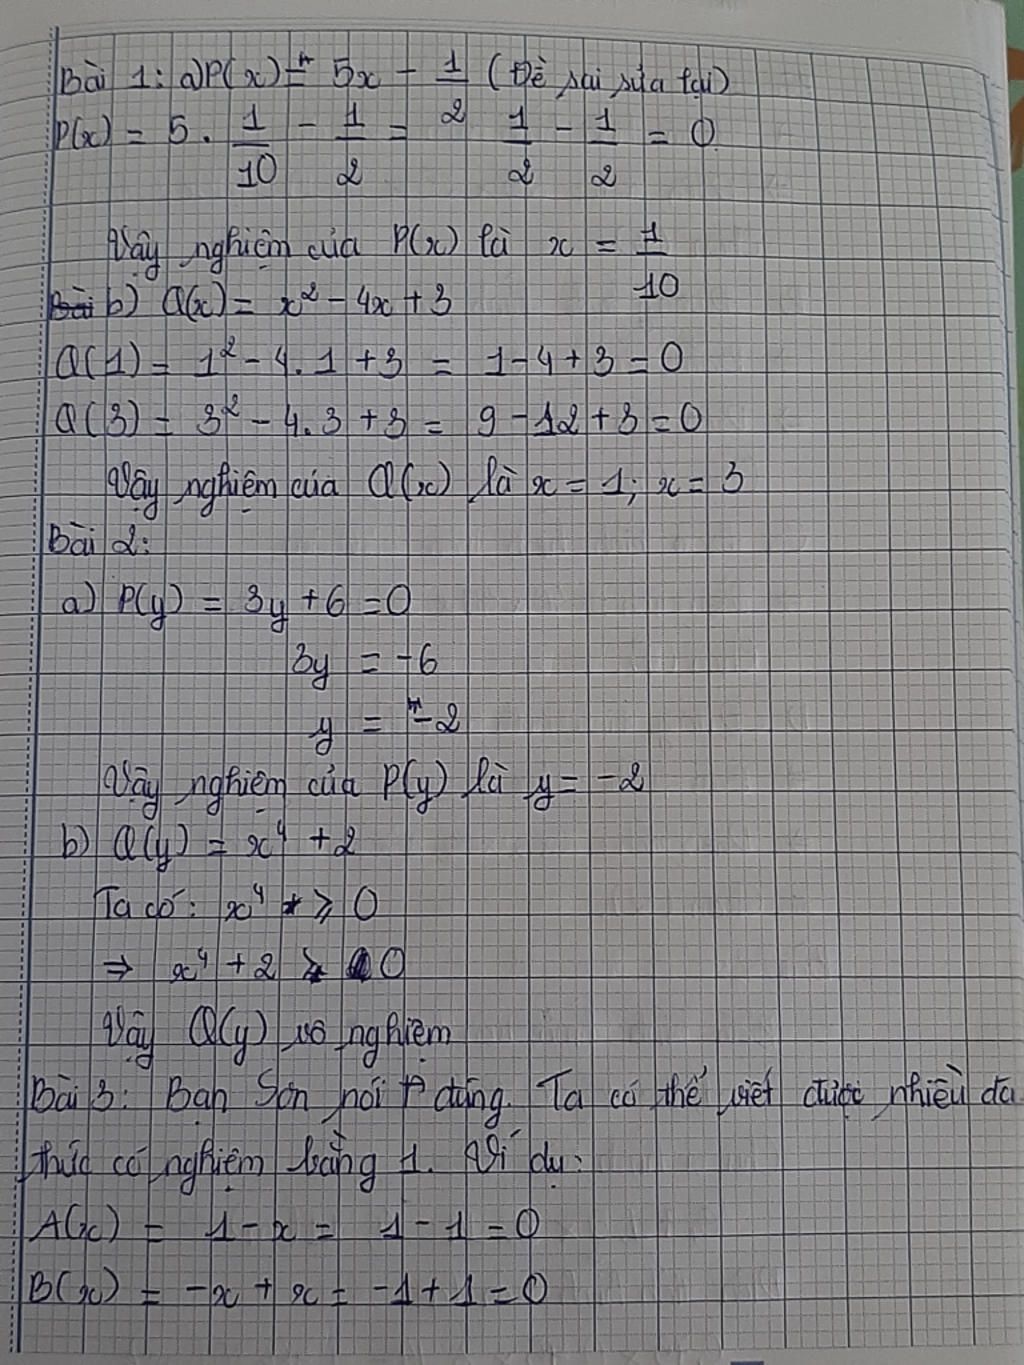 Bài 1: a) P(x) = 5x - 1/2 (Đề sai sửa lại)
P(x) = 5 . 1/10 - 1/2 = 1/2 - 1/2 = 0
Vậy nghiệm của P(x) là x = 1/10
Bài b) Q(x) = x² - 4x + 3
Q(1) = 1² - 4.1 + 3 = 1 - 4 + 3 = 0
Q(3) = 3² - 4.3 + 3 = 9 - 12 + 3 = 0
Vậy nghiệm của Q(x) là x = 1; x = 3
Bài 2:
a) P(y) = 3y + 6 = 0
3y = -6
y = -2
Vậy nghiệm của P(y) là y = -2
b) Q(y) = x⁴ + 2
Ta có: x⁴ ⩾ 0
⇒ x⁴ + 2 > 0
Vậy Q(y) vô nghiệm
Bài 3: Bạn Sơn nói đúng. Ta có thể viết được nhiều đa
thức có nghiệm bằng 1. Ví dụ:
A(x) = 1 - x = 1 - 1 = 0
B(x) = -x + x = -1 + 1 = 0